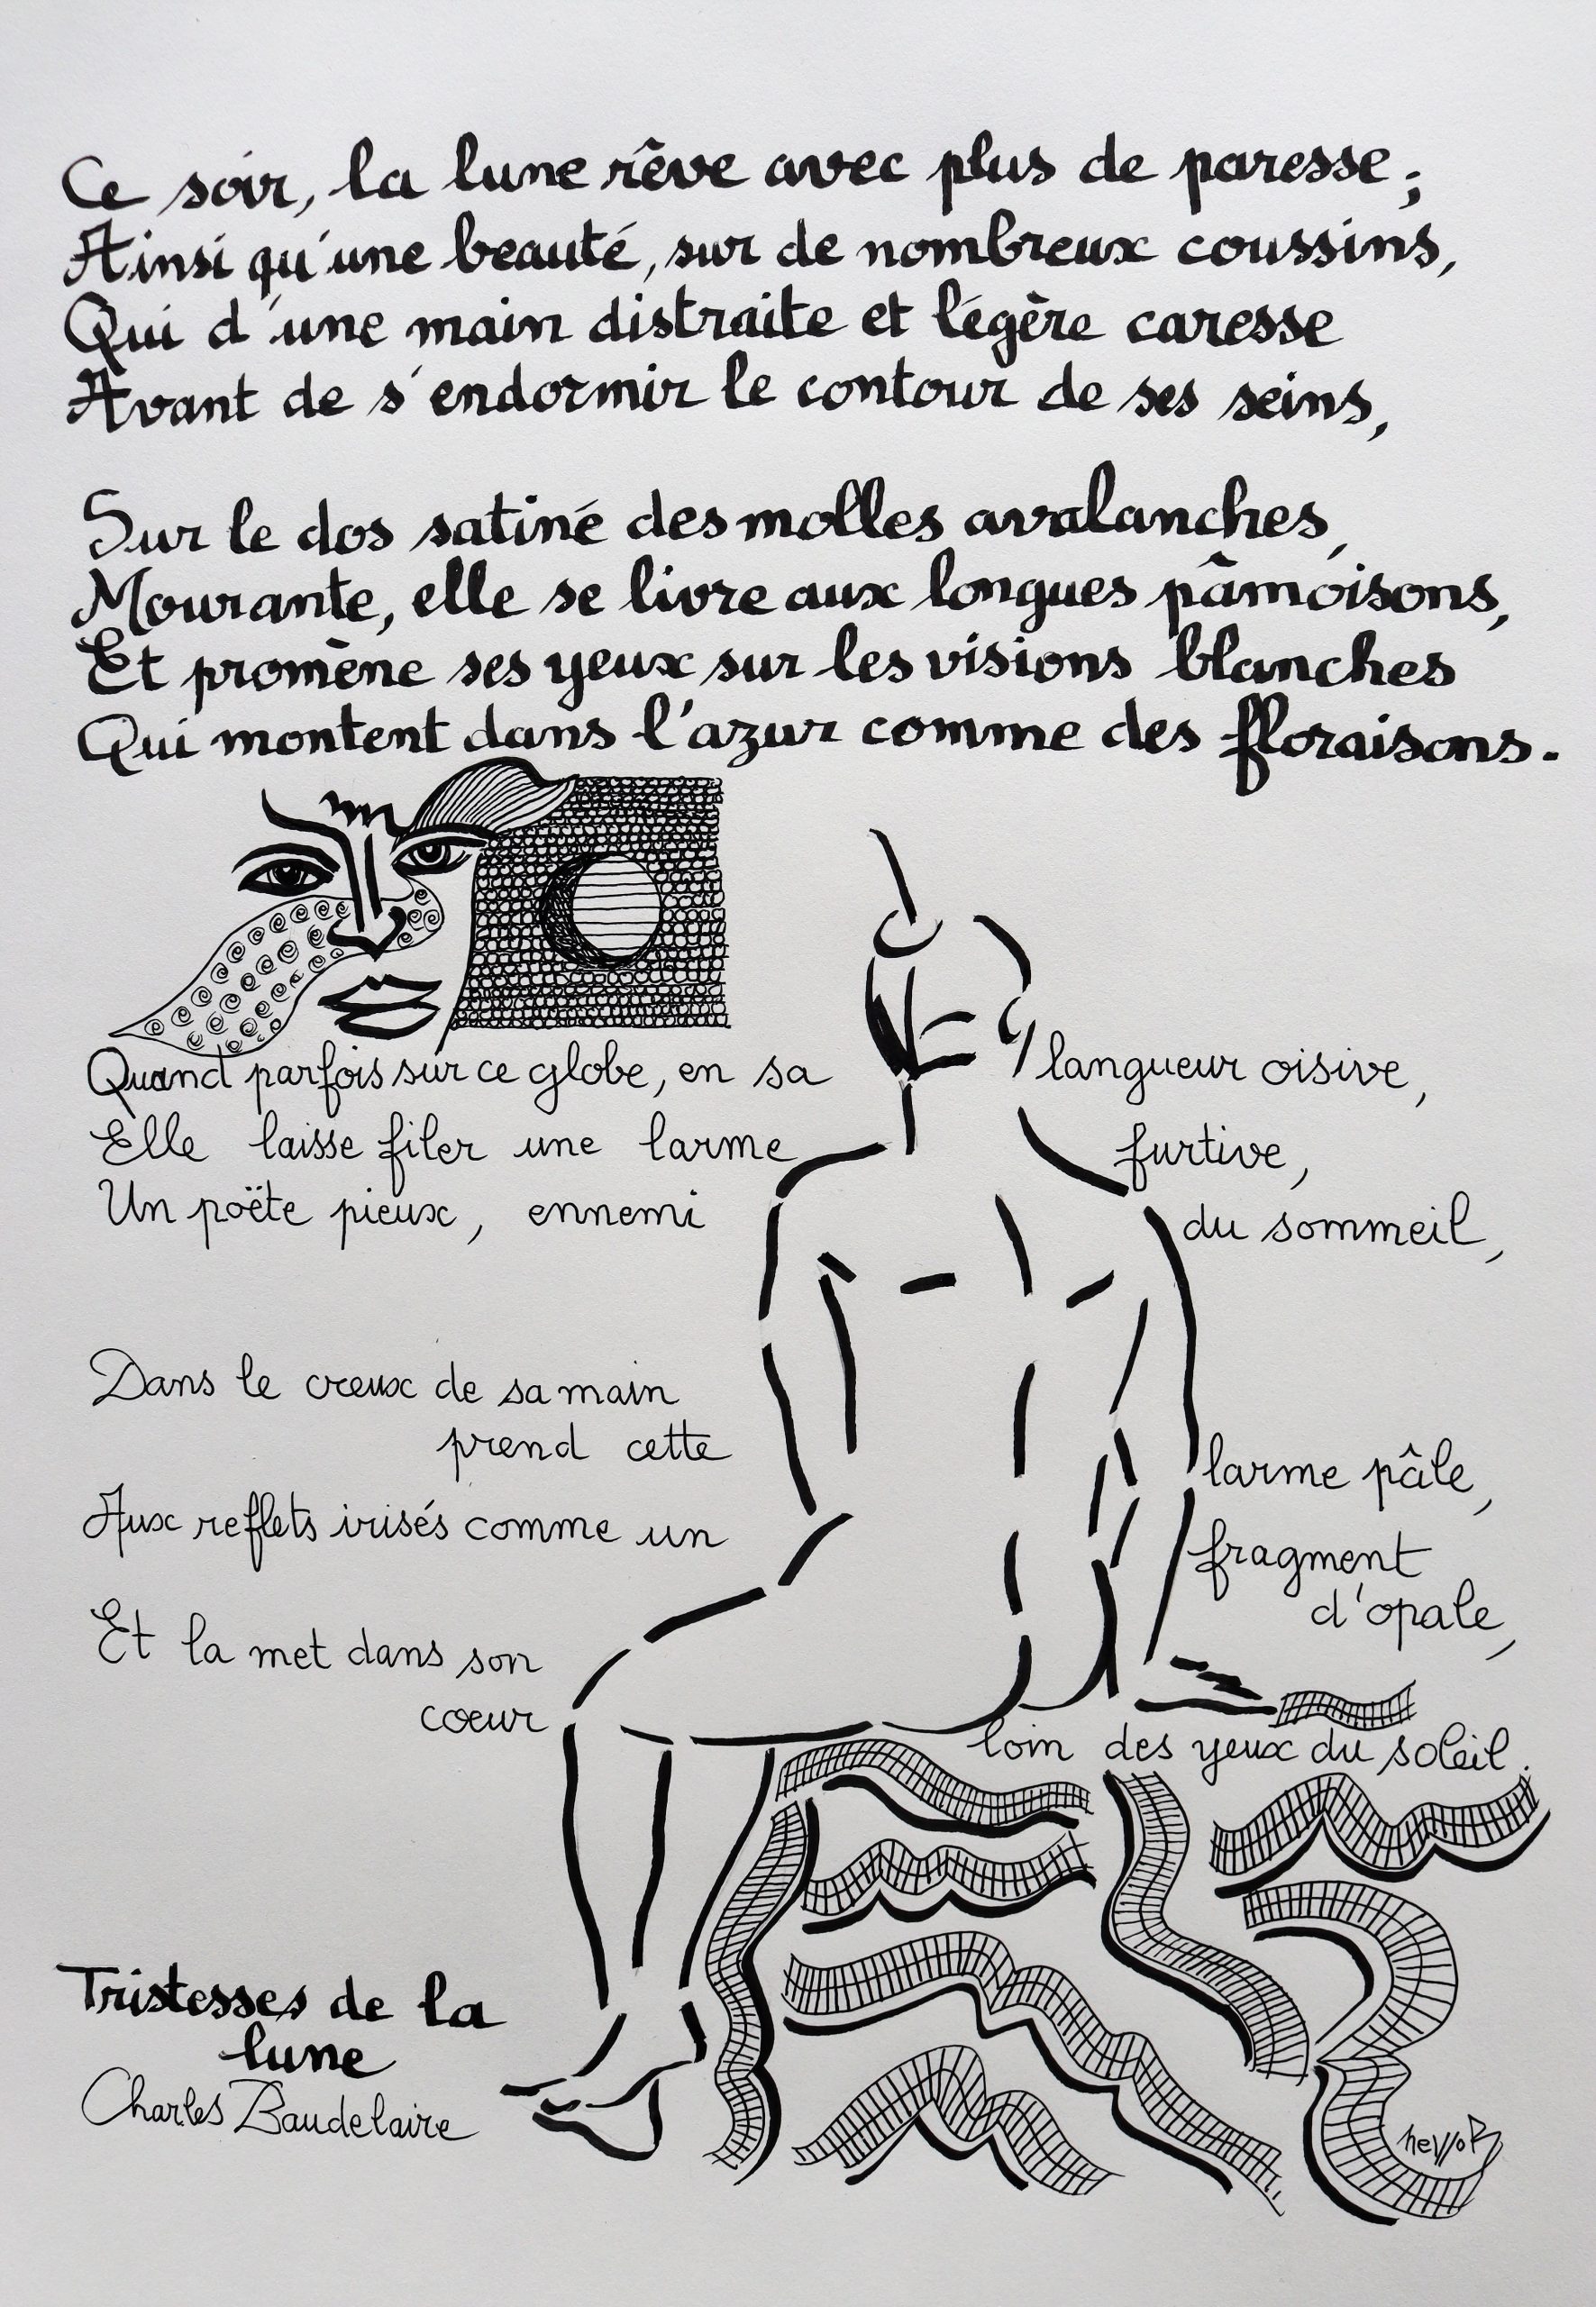 Ce soir, la lune rêve avec plus de paresse ;
Ainsi qu'une beauté, sur de nombreux coussins,
Qui d'une main distraite et légère caresse
Avant de s'endormir le contour de ses seins,
Sur le dos satiné des molles avalanches,
Mourante, elle se livre aux longues pâmoisons,
Et promène ses yeux sur les visions blanches
Qui montent dans l'azur comme des floraisons.
Quand parfois sur ce globe, en sa langueur oisive,
Elle laisse filer une larme furtive,
Un poëte pieux, ennemi du sommeil,
Dans le creux de sa main
prend cette larme pâle,
Aux reflets irisés comme un fragment
d'opale,
Et la met dans son
cœur loin des yeux du soleil.
Tristesses de la
lune
Charles Baudelaire